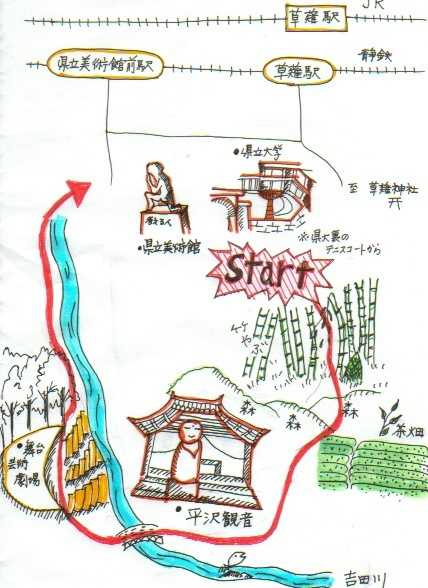 JR
草薙駅
静鉄
県立美術館前駅
草薙駅
•県立大学
至 草薙神社
考える人
•県立美術館
※県大裏の
テニスコートから
Start
竹やぶ
森
森
森
茶畑
•舞台
芸術
劇場
•平沢観音
吉田川